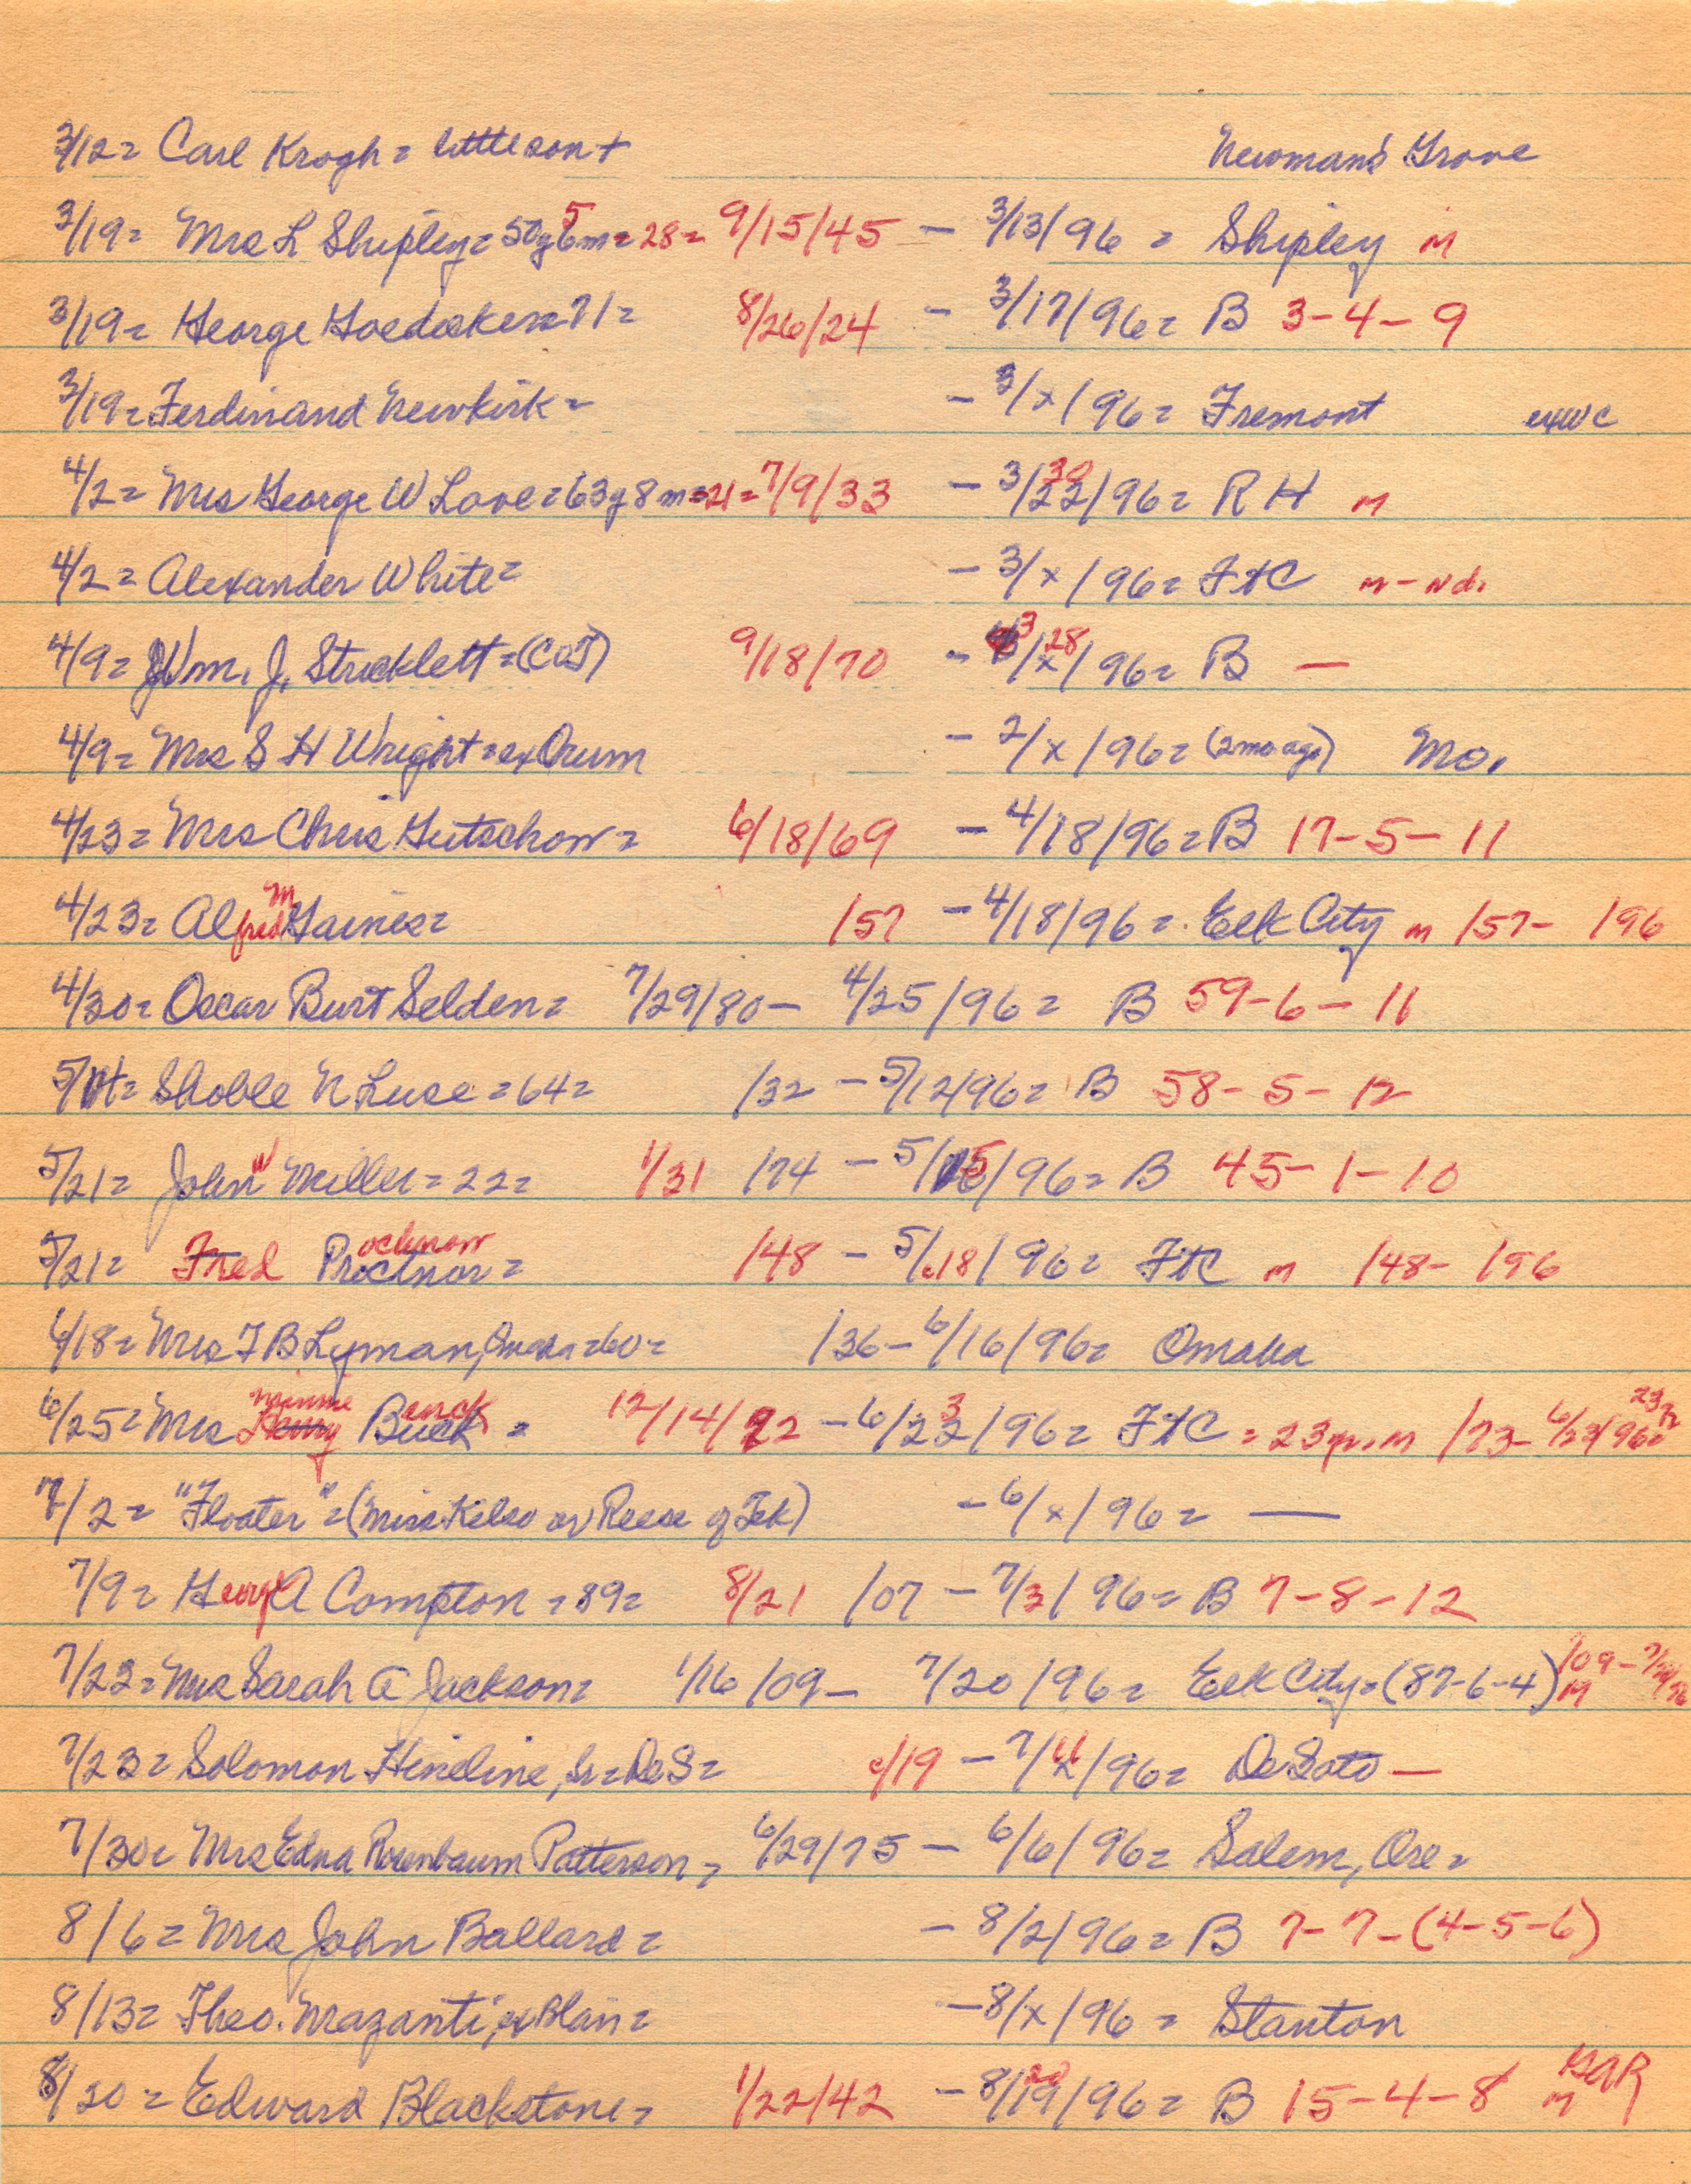 3/12= Carl Krogh= little son+ Newman's Grove
3/19= Mrs L Shipley= 50y 5 6m= 28= 9/15/45 - 3/13/96 = Shipley m
3/19= George Goedeker= 71= 8/26/24 - 3/17/96= B 3-4-9
3/19= Ferdinand Newkirk= - 3/x/96= Fremont exWC
4/2= Mrs George W Love=63y8m=21= 7/9/33 - 3/22 30/96= RH m
4/2= Alexander White= - 3/x/96= FtC m-nd.
4/9= Wm. J. Stricklett=(CoJ) 9/18/70 - 3/x 28/96= B —
4/9= Mrs S H Wright=exOrum - 2/x/96= (2mo ago) Mo.
4/23= Mrs Chris Gutschow= 6/18/69 - 4/18/96= B 17-5-11
4/23= Alfred M Haines= /57 - 4/18/96= Elk City m /57- /96
4/30= Oscar Burt Selden= 7/29/80- 4/25/96= B 59-6-11
5/14= Shoble N Luse=64= /32 - 5/12/96= B 58-5-12
5/21= John W Miller=22= 1/31 /74 - 5/15/96= B 45-1-10
5/21= Fred Proctnor ochnow = /48 - 5/18/96= FtC m /48- /96
6/18= Mrs F B Lyman, Omaha=60= /36- 6/16/96= Omaha
6/25= Mrs Henry Minnie Buck = 12/14/72 - 6/23/96= FtC = 23yr. m /73- 6/23/96=
7/2= "Floater"=(Miss Kelso or Reese of Tek) - 6/x/96= —
7/9= George A Compton =89= 8/21 /07 - 7/3/96= B 7-8-12
7/22= Mrs Sarah A Jackson= 1/16/09- 7/20/96= Elk City=(87-6-4) m /09-
7/23= Solomon Hineline, Sr=DeS= c/19 - 7/x 11/96= DeSoto —
7/30= Mrs Edna Rosenbaum Patterson= 6/29/75 - 6/6/96= Salem, Ore=
8/6= Mrs John Ballard= - 8/2/96= B 7-7-(4-5-6)
8/13= Theo. Mazanti, exBlair= - 8/x/96= Stanton
8/20= Edward Blackstone= 1/22/42 - 8/19 20/96= B 15-4-8 m GAR